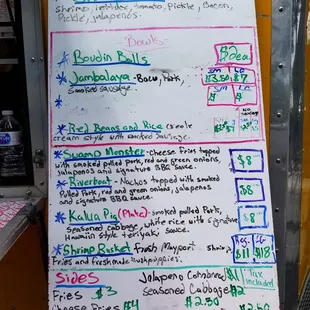 shrimp, lettuce, tomato, Pickle, Bacon,
Pickle, jalapenos.
Bowls
Boudin Balls $2ea
Jambalaya - Bacon, Pork, Sm Lg
Smoked sausage. $3.50 $7
$ $
Red Beans and Rice creole
cream style with smoked sausage.
Swamp Monster - cheese fries topped
with smoked pulled pork, red and green onions, $8
jalapenos and signature BBQ sauce.
Riverboat - Nachos topped with smoked
Pulled Pork, red and green onions, jalapenos $8
and signature BBQ sauce.
Kalua Pig (Plate) - smoked pulled Pork,
Seasoned cabbage, white rice with signature $8
Hawaiin style teriyaki sauce.
Shrimp Bucket fresh Mayport shrimp Reg. LG
Fries and freshmade hushpuppies. $11 $18
Sides Jalapeno Cornbread $1 Tax
Fries $3 Seasoned Cabbage $2 Included
Cheese Fries $4 $2.50 $2.50